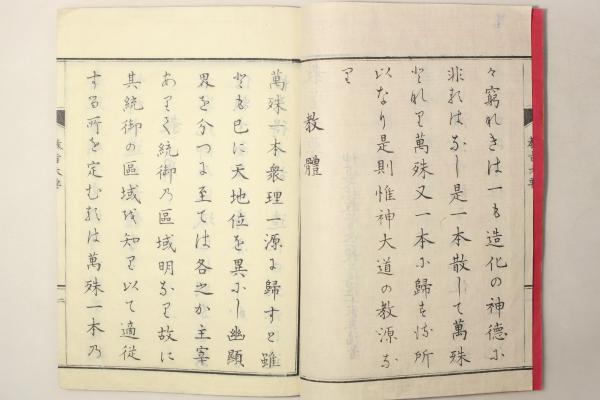 々窮れきは一も造化の神德に
非るはなし是一本散して萬殊
となれり萬殊又一本に歸する所
以なり是則惟神大道の教源な
り
教體
萬殊一本衆理一源に歸すと雖
とも已に天地位を異にし幽顯
界を分つに至ては各之か主宰
ありて統御の區域明なり故に
其統御の區域を知り以て適從
する所を定むるは萬殊一本の